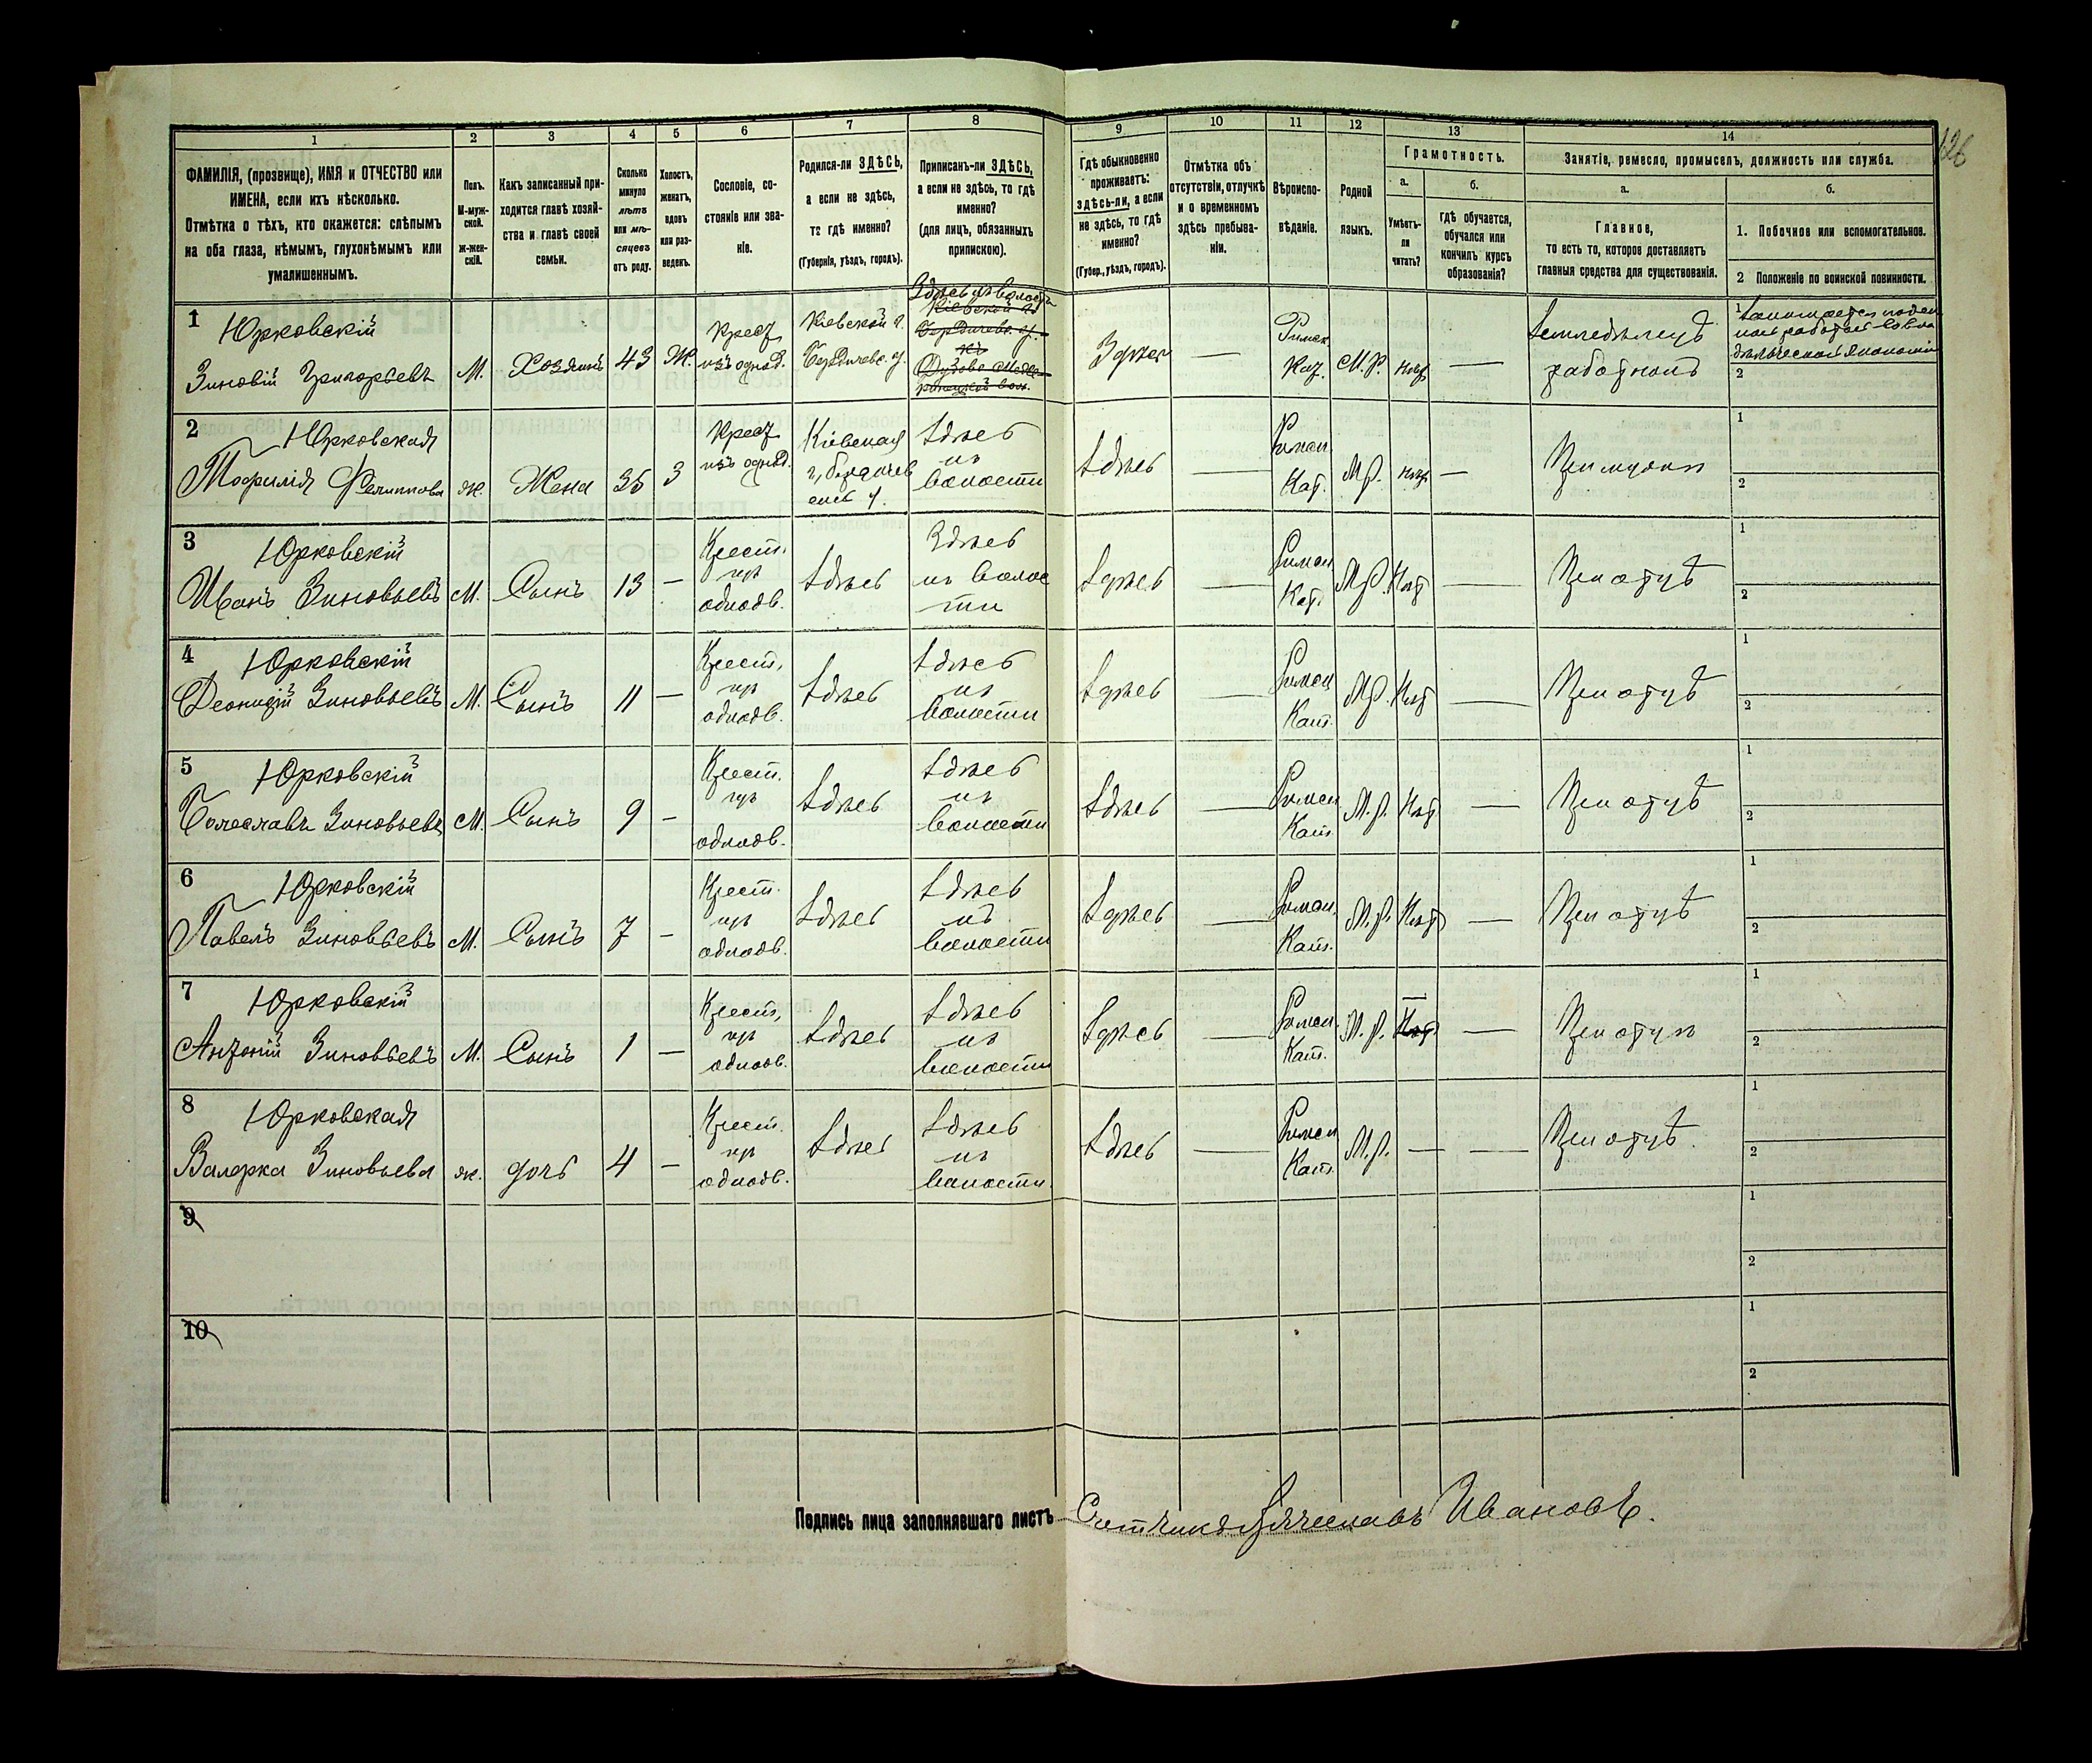 126
1 2 3 4 5 6 7 8 9 10 11 12 13 14
ФАМИЛІЯ, (прозвище), ИМЯ и ОТЧЕСТВО или
ИМЕНА, если ихъ нѣсколько.
Отмѣтка о тѣхъ, кто окажется: слѣпымъ
на оба глаза, нѣмымъ, глухонѣмымъ или
умалишеннымъ.
Полъ.
М-муж-
ской.
ж-жен-
скій.
Какъ записанный при-
ходится главѣ хозяй-
ства и главѣ своей
семьи.
Сколько
минуло
лѣтъ
или мѣ-
сяцевъ
отъ роду.
Холостъ,
женатъ,
вдовъ
или раз-
веденъ.
Сословіе, со-
стояніе или зва-
ніе.
Родился-ли ЗДѢСЬ,
а если не здѣсь,
то гдѣ именно?
(Губернія, уѣздъ, городъ).
Приписанъ-ли ЗДѢСЬ,
а если не здѣсь, то гдѣ
именно?
(для лицъ, обязанныхъ
припискою).
Гдѣ обыкновенно
проживаетъ:
здѣсь-ли, а если
не здѣсь, то гдѣ
именно?
(Губер., уѣздъ, городъ).
Отмѣтка объ
отсутствіи, отлучкѣ
и о временномъ
здѣсь пребыва-
ніи.
Вѣроиспо-
вѣданіе.
Родной
языкъ.
Грамотность.
а. б.
Умѣетъ-
ли
читать?
гдѣ обучается,
обучался или
кончилъ курсъ
образованія?
Занятіе, ремесло, промыселъ, должность или служба.
а. б.
Главное,
то есть то, которое доставляетъ
главныя средства для существованія.
1. Побочное или вспомогательное.
2 Положеніе по воинской повинности.
1 Юрковскій
Зиновій Григорьевъ
М. Хозяинъ 43 Ж.
Крест.
изъ однод.
Кіевской г.
Бердичевс. у.
Здѣсь въ волости
Кіевской г.
Бердичевс. у.
Здѣсь —
Римск.
Кат.
М.Р. нѣт —
Земледѣлецъ
работникъ
1
2
2 Юрковская
Теофилія Филиппова
ж. Жена 35 З
Крест.
изъ однод.
Кіевская
г., Бердичев
скій у.
Здѣсь
въ
волости
Здѣсь —
Римск.
Кат.
М.Р. нѣт —
При мужѣ
1
2
3 Юрковскій
Иванъ Зиновьевъ
М. Сынъ 13 —
Крест.
изъ
однодв.
Здѣсь
Здѣсь
въ волос
ти
Здѣсь —
Римск.
Кат.
М.Р. Нѣт —
При отцѣ
1
2
4 Юрковскій
Леонидій Зиновьевъ
М. Сынъ 11 —
Крест.
изъ
однодв.
Здѣсь
Здѣсь
въ
волости
Здѣсь —
Римск
Кат.
М.Р. Нѣт —
При отцѣ
1
2
5 Юрковскій
Болеславъ Зиновьевъ
М. Сынъ 9 —
Крест.
изъ
однодв.
Здѣсь
Здѣсь
въ
волости
Здѣсь —
Римск
Кат.
М.Р. Нѣт —
При отцѣ
1
2
6 Юрковскій
Павелъ Зиновьевъ
М. Сынъ 7 —
Крест.
изъ
однодв.
Здѣсь
Здѣсь
въ
волости
Здѣсь —
Римск.
Кат.
М.Р. Нѣт —
При отцѣ
1
2
7 Юрковскій
Антоній Зиновьевъ
М. Сынъ 1 —
Крест.
изъ
однодв.
Здѣсь
Здѣсь
въ
волости
Здѣсь —
Римск.
Кат.
М.Р. Нѣт —
При отцѣ
1
2
8 Юрковская
Валерка Зиновьева
ж. дочь 4 —
Крест.
изъ
однодв.
Здѣсь
Здѣсь
въ
волости.
Здѣсь —
Римск
Кат.
М.Р. — —
При отцѣ.
1
2
9
1
2
10
1
2
Подпись лица заполнявшаго листъ Счетчикъ Вячеславъ Ивановъ.